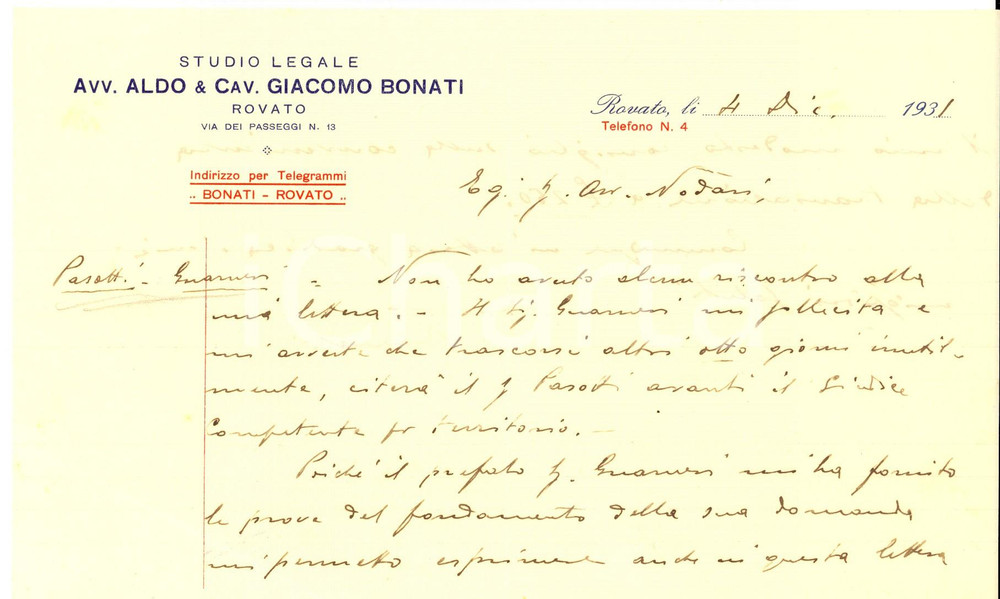 STUDIO LEGALE
AVV. ALDO & CAV. GIACOMO BONATI
ROVATO
VIA DEI PASSEGGI N. 13
Indirizzo per Telegrammi
.. BONATI - ROVATO ..
Rovato, li 4 Dic. 1931
Telefono N. 4
Eg. Sig. Avv. Nodari,
Pasotti - Guarneri = Non ho avuto alcun riscontro alla
mia lettera. - Il Sig. Guarneri mi sollecita e
mi avverte che trascorsi altri otto giorni inutil-
mente, citerà il Sig Pasotti avanti il Giudice
Competente per territorio. -
Poiché il prefato Sig. Guarneri mi ha fornito
le prove del fondamento della sua domanda
mi permetto esprimere anche in questa lettera
iCharta